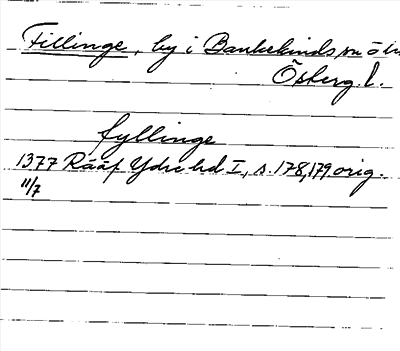 Fillinge, by i Bankekinds sn o hd
Österg. l.
fyllinge
1377 Rääf Ydre hd I, s. 178, 179 orig.
11/7